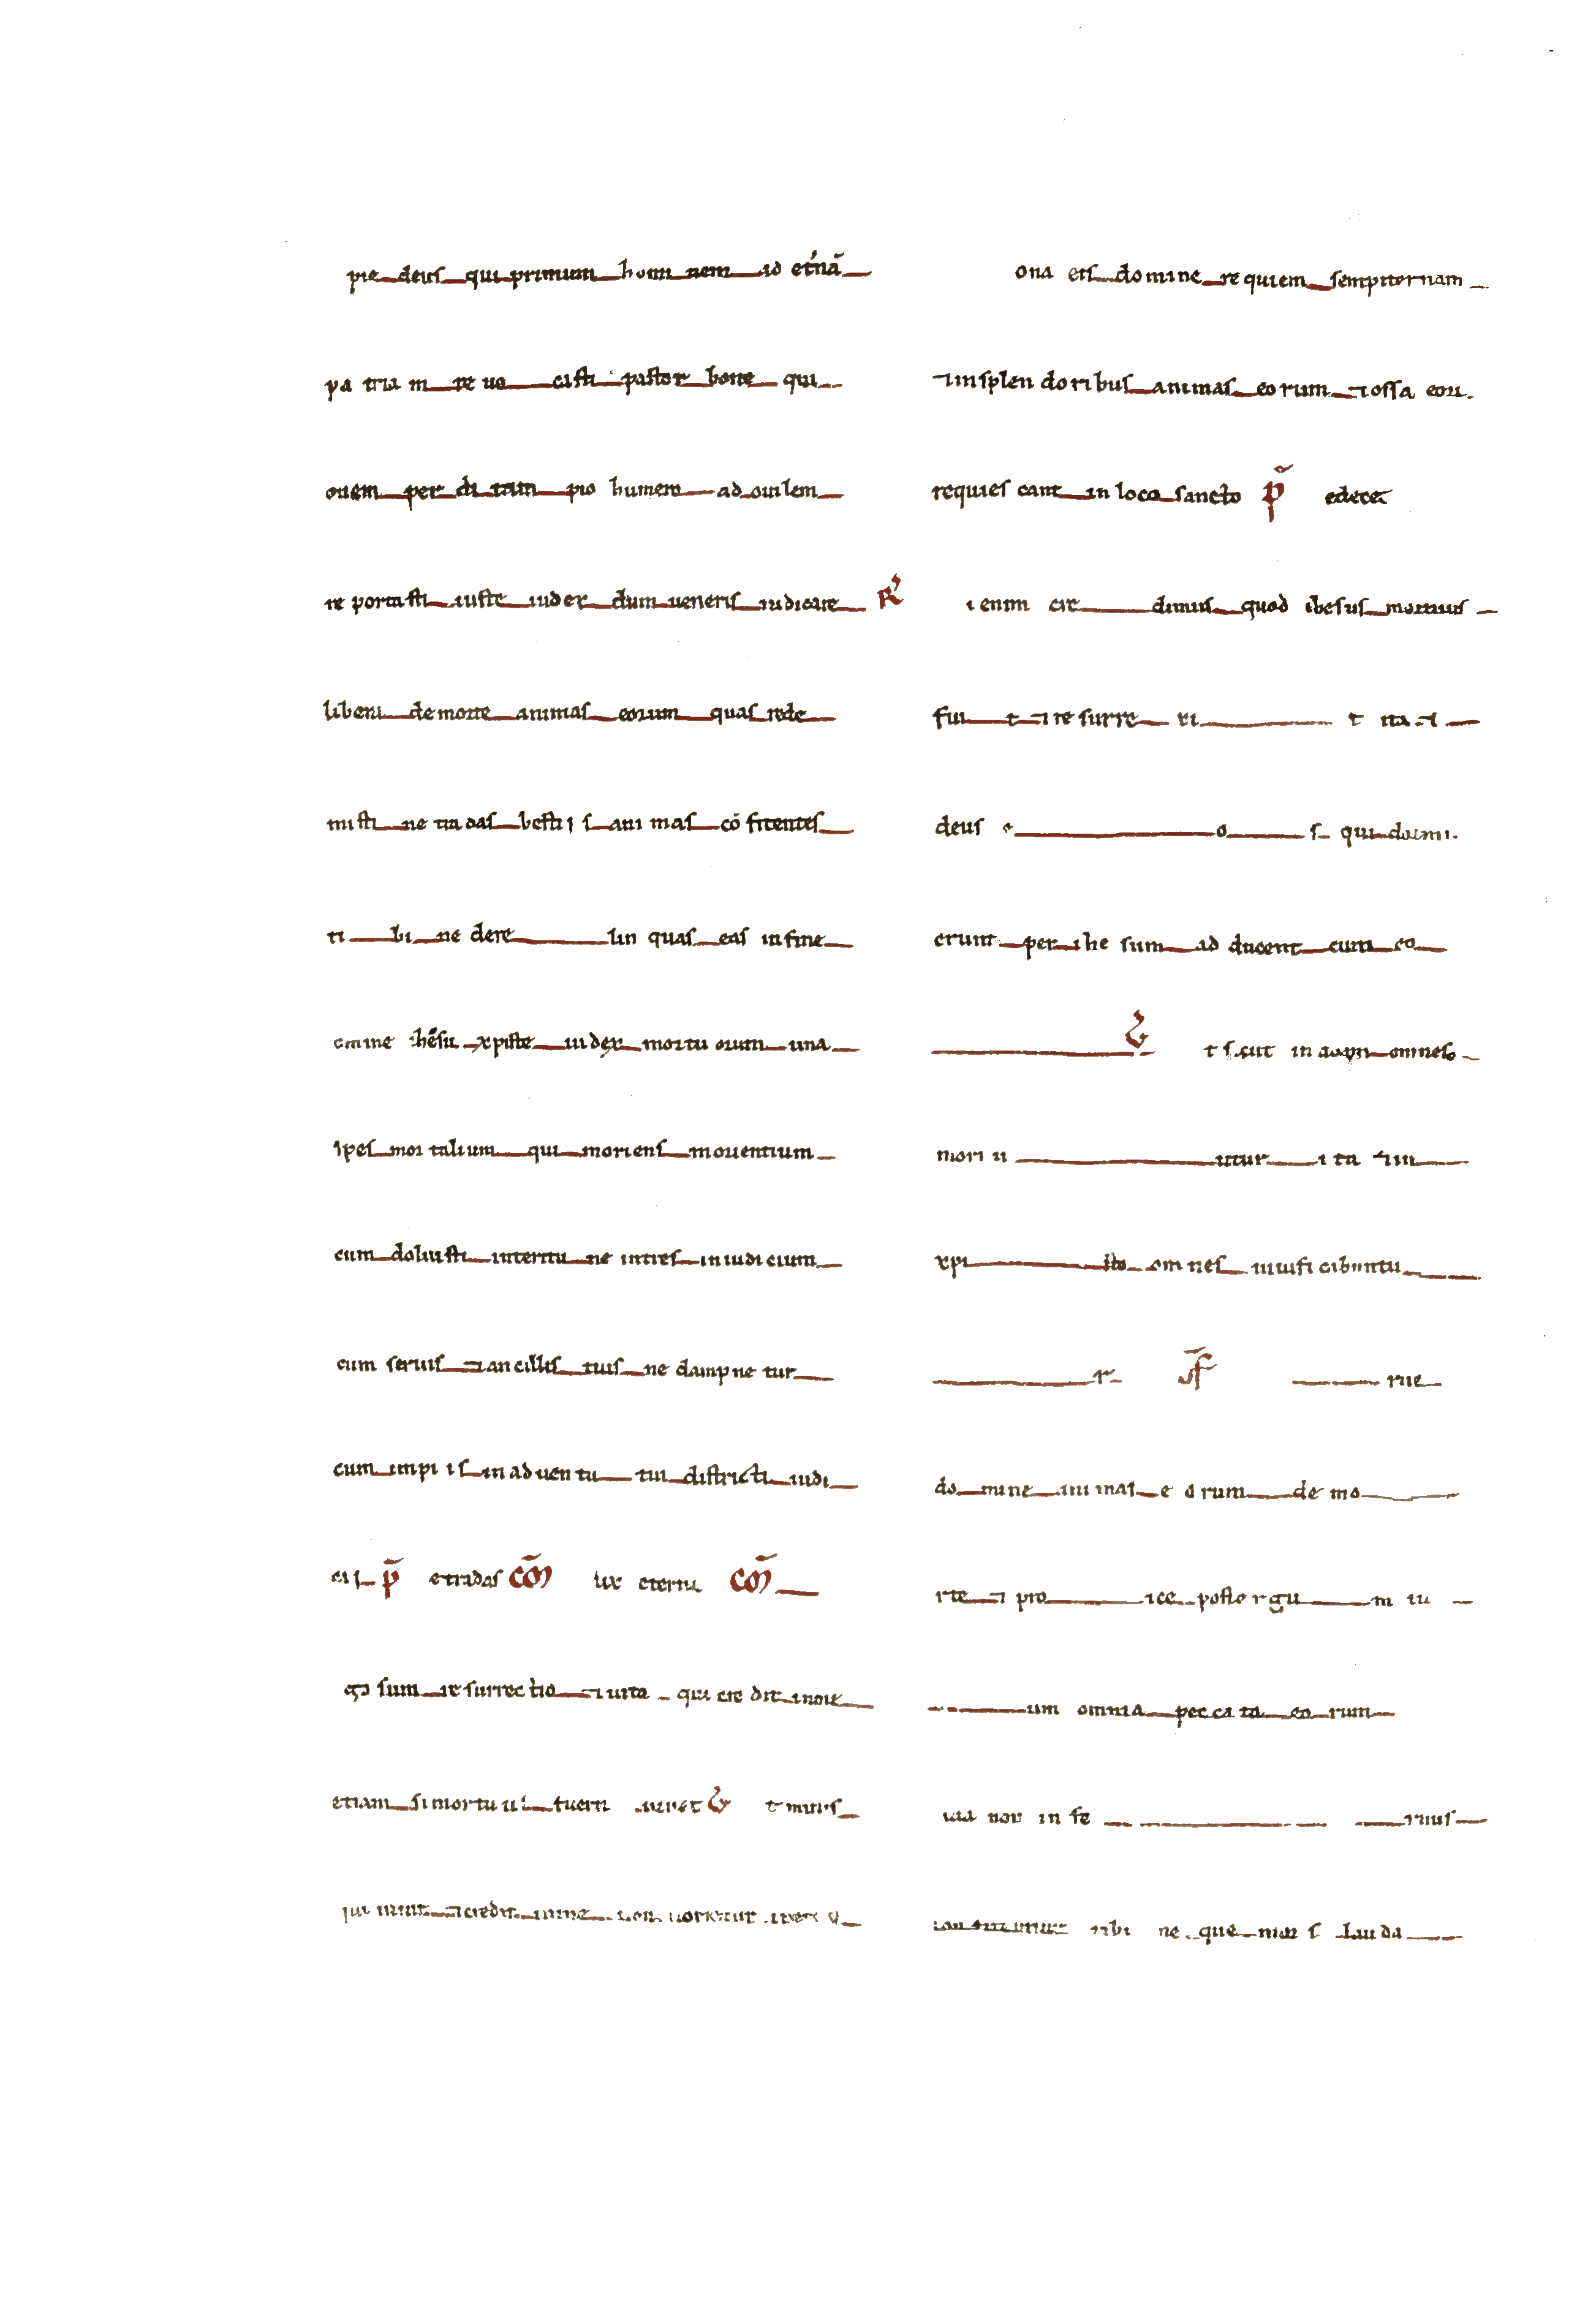 pie deus qui primum homi nem ad et'nã
pa tria m re uo casti pastor bone qui
ouem per di tam pio humero ad ouilem
re portasti iuste iudex dum ueneris iudicare
libera de morte animas eorum quas rede
misti ne tra das besti i s ani mas cō fitentes
ti bi ne dere lin quas eas in fine
omine ihesu xpiste iudex mortu orum una
spes mor talium qui moriens morientium
cum doluisti interitu ne intres in iudicium
cum seruis ⁊ ancillis tuis ne dampne tur
cum impi is in aduen tu tui districti iudi
cis p̃ e tradas cōm lux eterna cōm
go sum re surrec tio ⁊ uita qui cre dit in me
etiam si mortu us fuerit uiuet & t omnis
qui uiuit ⁊ credit in me non morietur
ona eis domine re quiem sempiternam
⁊ in splen doribus animas eo rum ⁊ ossa eou.
requies cant in loco sancto p̃ edecet
R' i enim cre dimus quod ihesus mortuus
fui t ⁊ re surre xi t ita ⁊
deus e o s qui dormi.
erunt per ihe sum ad ducent cum eo
& t sicut in adam omnes
mori u ntur i ta ⁊ in
xpi sto om nes uiuifi cabuntu
r of rue
do mine ani mas e orum de mo
rte ⁊ pro ice post e rgu m tu
um omnia pec ca ta eo rum
uia non in fe rnus
con fitebitur tibi ne que mor s lau da